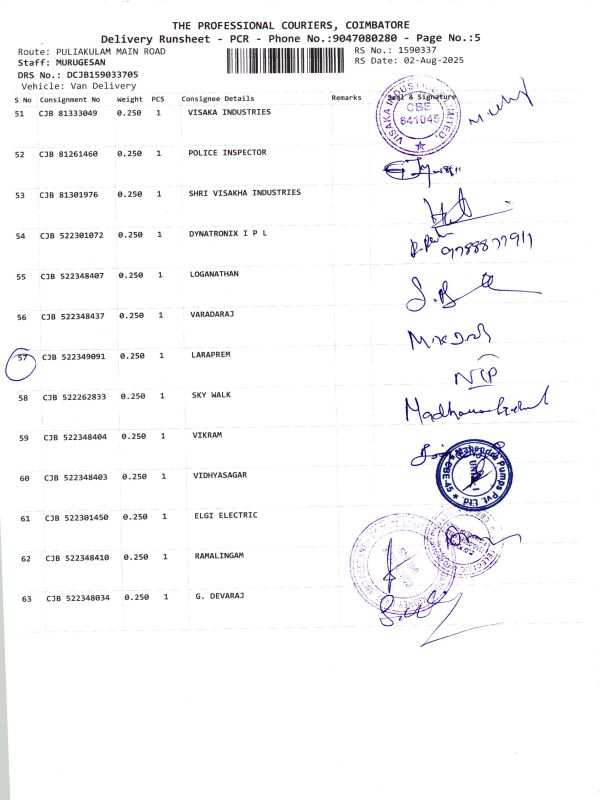 THE PROFESSIONAL COURIERS, COIMBATORE
Delivery Runsheet - PCR - Phone No.:9047080280 - Page No.:5
Route: PULIAKULAM MAIN ROAD RS No.: 1590337
Staff: MURUGESAN RS Date: 02-Aug-2025
DRS No.: DCJB159033705
Vehicle: Van Delivery
S No Consignment No Weight PCS Consignee Details Remarks Seal & Signature
51 CJB 81333049 0.250 1 VISAKA INDUSTRIES
VISAKA INDUSTRIES LIMITED.
CBE
641045
52 CJB 81261460 0.250 1 POLICE INSPECTOR
53 CJB 81301976 0.250 1 SHRI VISAKHA INDUSTRIES
54 CJB 522301072 0.250 1 DYNATRONIX I P L
9788877911
55 CJB 522348407 0.250 1 LOGANATHAN
56 CJB 522348437 0.250 1 VARADARAJ
57 CJB 522349091 0.250 1 LARAPREM
NIP
58 CJB 522262833 0.250 1 SKY WALK
59 CJB 522348404 0.250 1 VIKRAM
60 CJB 522348403 0.250 1 VIDHYASAGAR
Pumps Pvt Ltd
CBE-45
61 CJB 522301450 0.250 1 ELGI ELECTRIC
62 CJB 522348410 0.250 1 RAMALINGAM
63 CJB 522348034 0.250 1 G. DEVARAJ